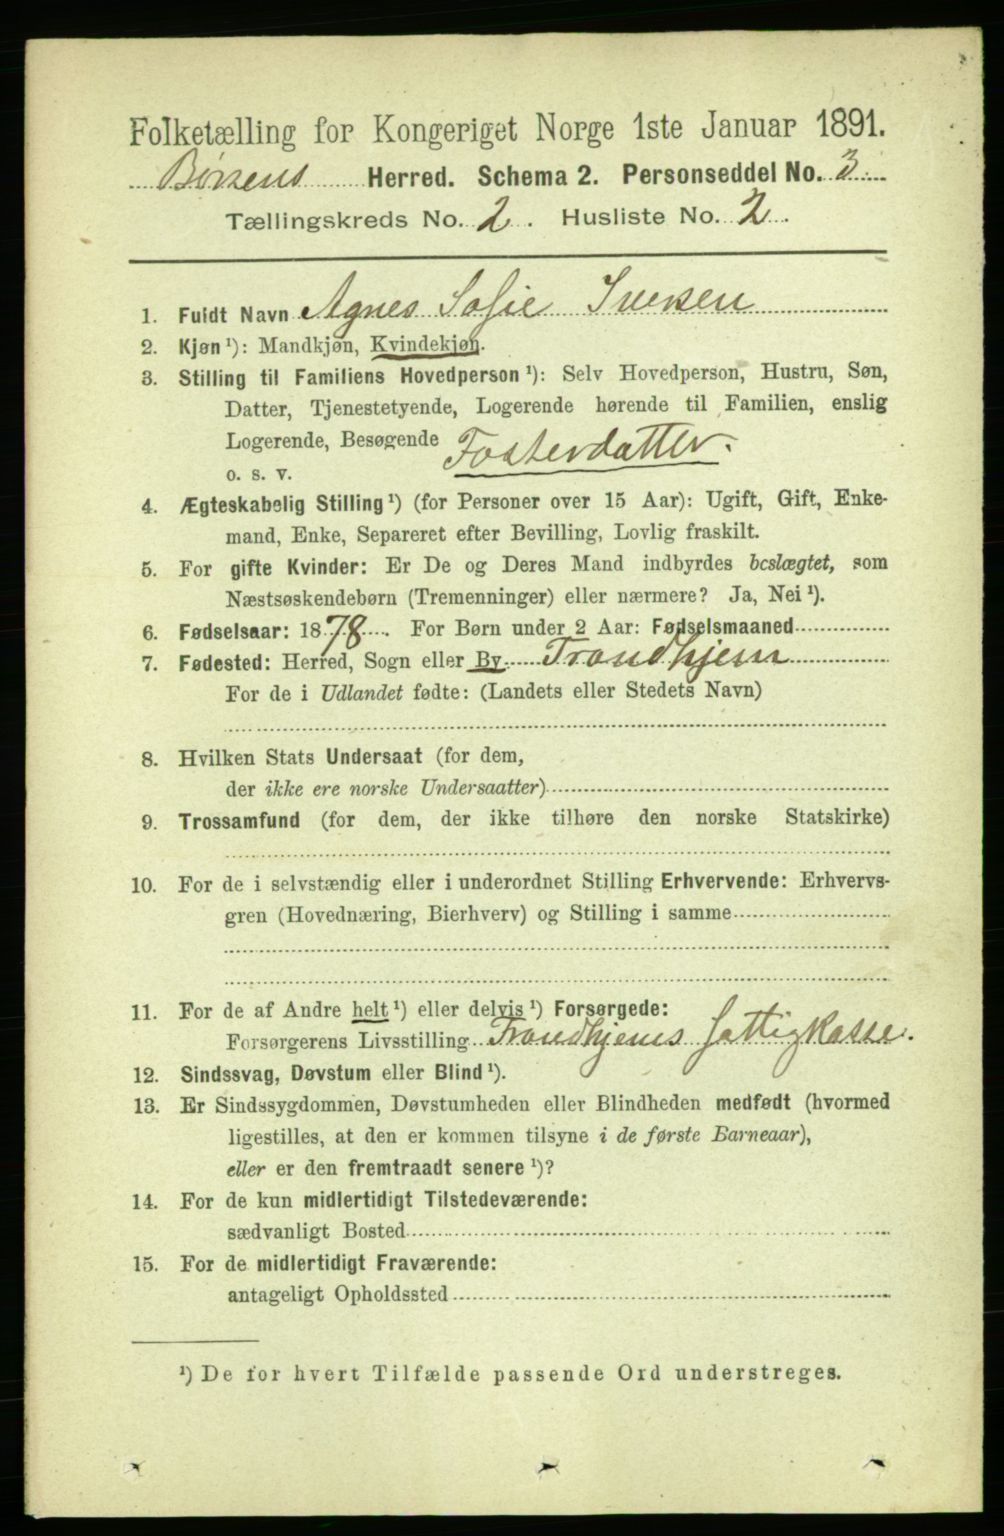 Folketælling for Kongeriget Norge 1ste Januar 1891.
Børsens Herred. Schema 2. Personseddel No. 3
Tællingskreds No. 2. Husliste No. 2.
1. Fuldt Navn Agnes Sofie Iversen
2. Kjøn¹): Mandkjøn, Kvindekjøn.
3. Stilling til Familiens Hovedperson¹): Selv Hovedperson, Hustru, Søn,
Datter, Tjenestetyende, Logerende hørende til Familien, enslig
Logerende, Besøgende Fosterdatter.
o. s. v.
4. Ægteskabelig Stilling¹) (for Personer over 15 Aar): Ugift, Gift, Enke-
mand, Enke, Separeret efter Bevilling, Lovlig fraskilt.
5. For gifte Kvinder: Er De og Deres Mand indbyrdes beslægtet, som
Næstsøskendebørn (Tremenninger) eller nærmere? Ja, Nei¹).
6. Fødselsaar: 1878. For Børn under 2 Aar: Fødselsmaaned
7. Fødested: Herred, Sogn eller By Trondhjem
For de i Udlandet fødte: (Landets eller Stedets Navn)
8. Hvilken Stats Undersaat (for dem,
der ikke ere norske Undersaatter)
9. Trossamfund (for dem, der ikke tilhøre den norske Statskirke)
10. For de i selvstændig eller i underordnet Stilling Erhvervende: Erhvervs-
gren (Hovednæring, Bierhverv) og Stilling i samme
11. For de af Andre helt¹) eller delvis¹) Forsørgede:
Forsørgerens Livsstilling Trondhjems fattigkasse.
12. Sindssvag, Døvstum eller Blind¹).
13. Er Sindssygdommen, Døvstumheden eller Blindheden medfødt (hvormed
ligestilles, at den er kommen tilsyne i de første Barneaar),
eller er den fremtraadt senere¹)?
14. For de kun midlertidigt Tilstedeværende:
sædvanligt Bosted
15. For de midlertidigt Fraværende:
antageligt Opholdssted
¹) De for hvert Tilfælde passende Ord understreges.